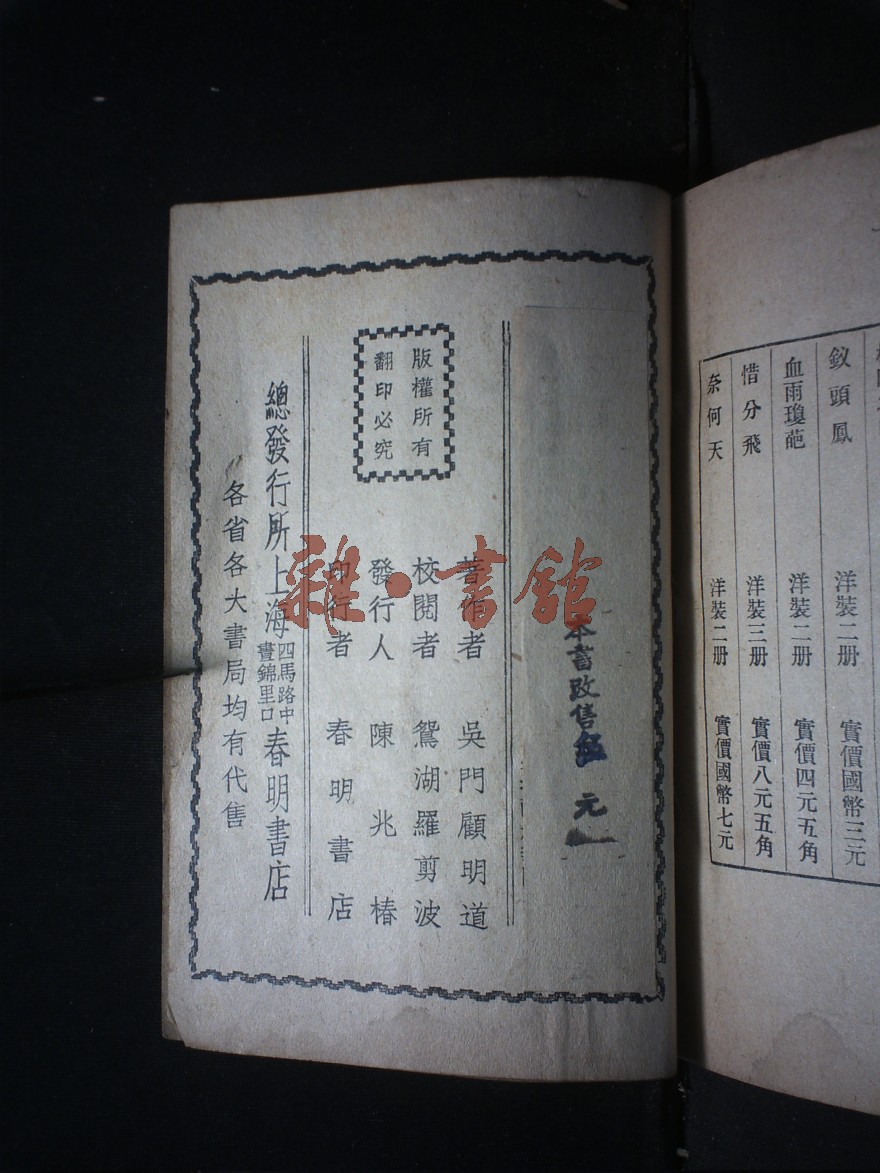 釵頭鳳 洋裝二册 實價國幣三元
血雨瓊葩 洋裝二册 實價四元五角
惜分飛 洋裝三册 實價八元五角
奈何天 洋裝二册 實價國幣七元
本書改售 元
版權所有
翻印必究
著作者 吳門顧明道
校閱者 鴛湖羅剪波
發行人 陳兆椿
印行者 春明書店
總發行所上海四馬路中晝錦里口春明書店
各省各大書局均有代售
雜·書館